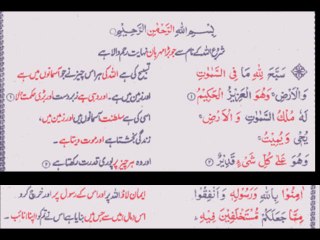 بِسْمِ اللهِ الرَّحْمٰنِ الرَّحِيْمِ
شروع اللہ کے نام سے جو بڑا مہربان نہایت رحم والا ہے
سَبَّحَ لِلّٰهِ مَا فِي السَّمٰوٰتِ
وَالْاَرْضِ ۚ وَهُوَ الْعَزِيْزُ الْحَكِيْمُ ۝۱
لَهٗ مُلْكُ السَّمٰوٰتِ وَالْاَرْضِ ۚ
يُحْيٖ وَيُمِيْتُ ۚ
وَهُوَ عَلٰى كُلِّ شَيْءٍ قَدِيْرٌ ۝۲
تسبیح کی ہے اللہ کی ہر اس چیز نے جو آسمانوں میں ہے
اور زمین میں ہے۔ اور وہی ہے زبردست اور بڑی حکمت والا ۱
اسی کی ہے سلطنت آسمانوں میں اور زمین میں،
زندگی بخشتا ہے اور موت دیتا ہے۔
اور وہ ہر چیز پر پوری قدرت رکھتا ہے ۲
اٰمِنُوْا بِاللهِ وَرَسُوْلِهٖ وَاَنْفِقُوْا
مِمَّا جَعَلَكُمْ مُّسْتَخْلَفِيْنَ فِيْهِ ۚ
ایمان لاؤ اللہ پر اور اس کے رسول پر اور خرچ کرو
اس مال میں سے جس میں بنایا ہے اس نے تم کو اپنا نائب۔